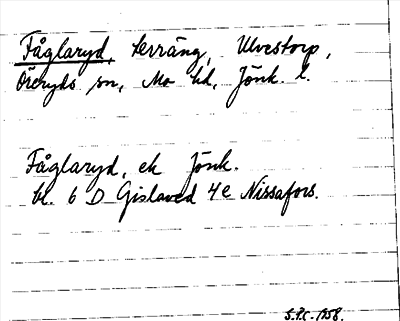 Fåglaryd, terräng, Ulvestorp,
Öreryds sn, Mo hd, Jönk. l.
Fåglaryd, ek Jönk.
bl. 6 D Gislaved 4e Nissafors.